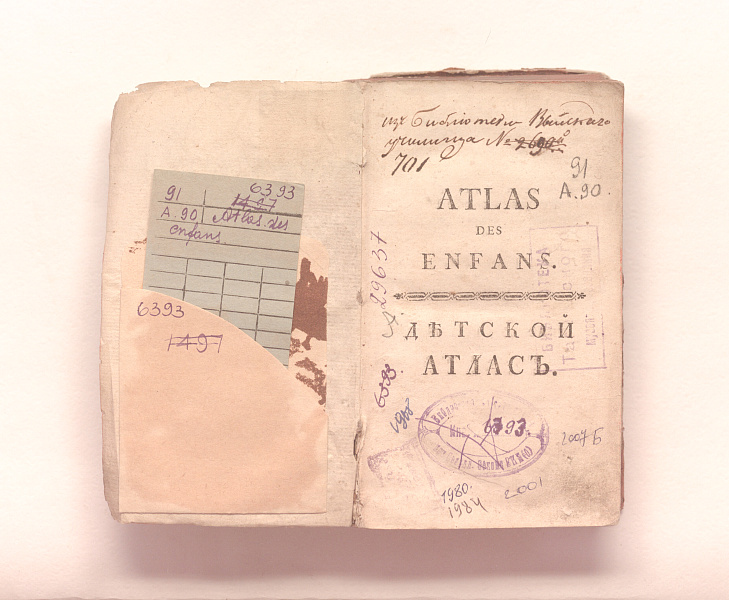 91 6393
1497
A.90 Atlas des
enfans
6393
1497
изъ Библіотеки Выйскаго
училища №
701
91
A.90.
ATLAS
DES
ENFANS.
ДѢТСКОЙ
АТЛАСЪ.
29637
6393
6393.
1980.
1984
2001
2007 Б
БИБЛИОТЕКА